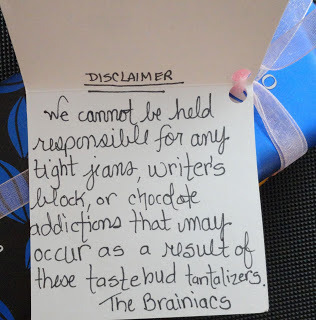 DISCLAIMER
We cannot be held
responsible for any
tight jeans, writer's
block, or chocolate
addictions that may
occur as a result of
these tastebud tantalizers.
The Brainiacs